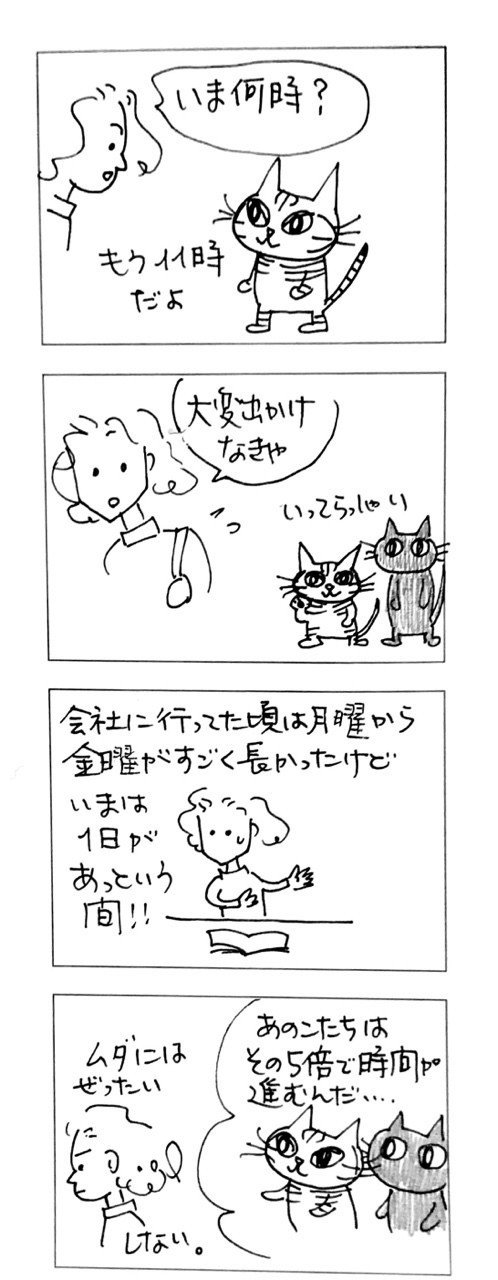 いま何時？
もう11時
だよ
大変出かけ
なきゃ
いってらっしゃい
会社に行ってた頃は月曜から
金曜がすごく長かったけど
いまは
1日が
あっという
間!!
あのこたちは
その5倍で時間が
進むんだ‥‥
ムダには
ぜったい
しない。